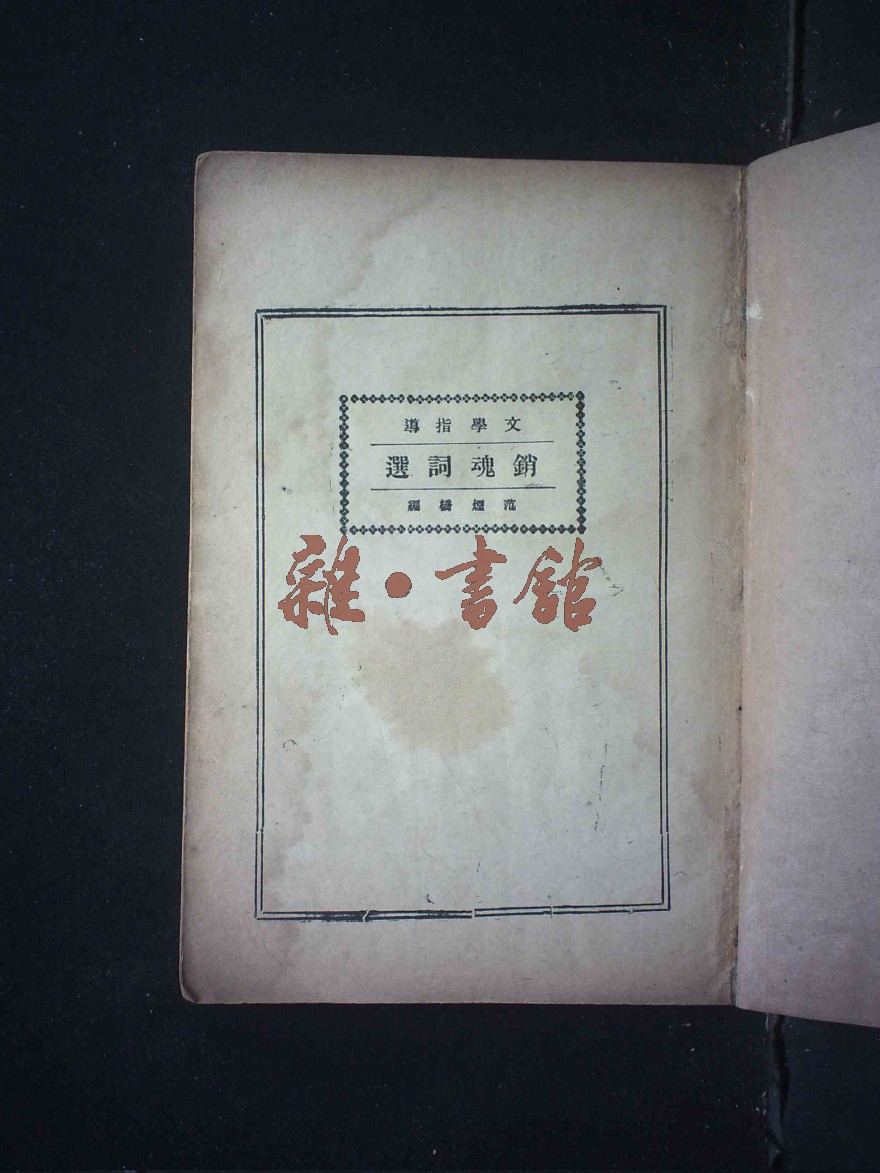 文學指導
銷魂詞選
范煙橋編
雜·書館